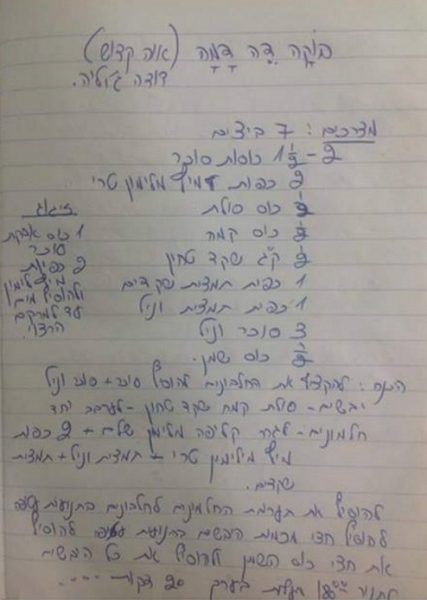 בּוֹקָה דֵה דָמָה (אוה קדוש)
דודה ג'וליה.
מצרכים: 7 ביצים
1 1/2 - 2 כוסות סוכר
2 כפות מיץ מלימון טרי
1/2 כוס סולת
1/2 כוס קמח
1/2 ק"ג שקד טחון
1 כפית תמצית שקדים
1 כפית תמצית וניל
3 סוכר וניל
1/2 כוס שמן.
זיגוג
1 כוס אבקת
סוכר
2 כפיות
מיץ לימון
ולהוסיף מים
עד למרקם
הרצוי.
הכנה: להקציף את החלבונים להוסיף סוכר + סוכר וניל
יבשים - סולת קמח שקד טחון - לערבב יחד
חלמונים - לגרר קליפה מלימון שלם + 2 כפות
מיץ מלימון טרי + תמצית וניל + תמצית
שקדים.
להוסיף את תערובת החלמונים לחלבונים בתנועות
להוסיף חצי מכמות היבשים בתנועות להוסיף
את חצי כוס השמן ולהוסיף את כל היבשים
לתנור 180 מעלות בערך 20 דקות ....